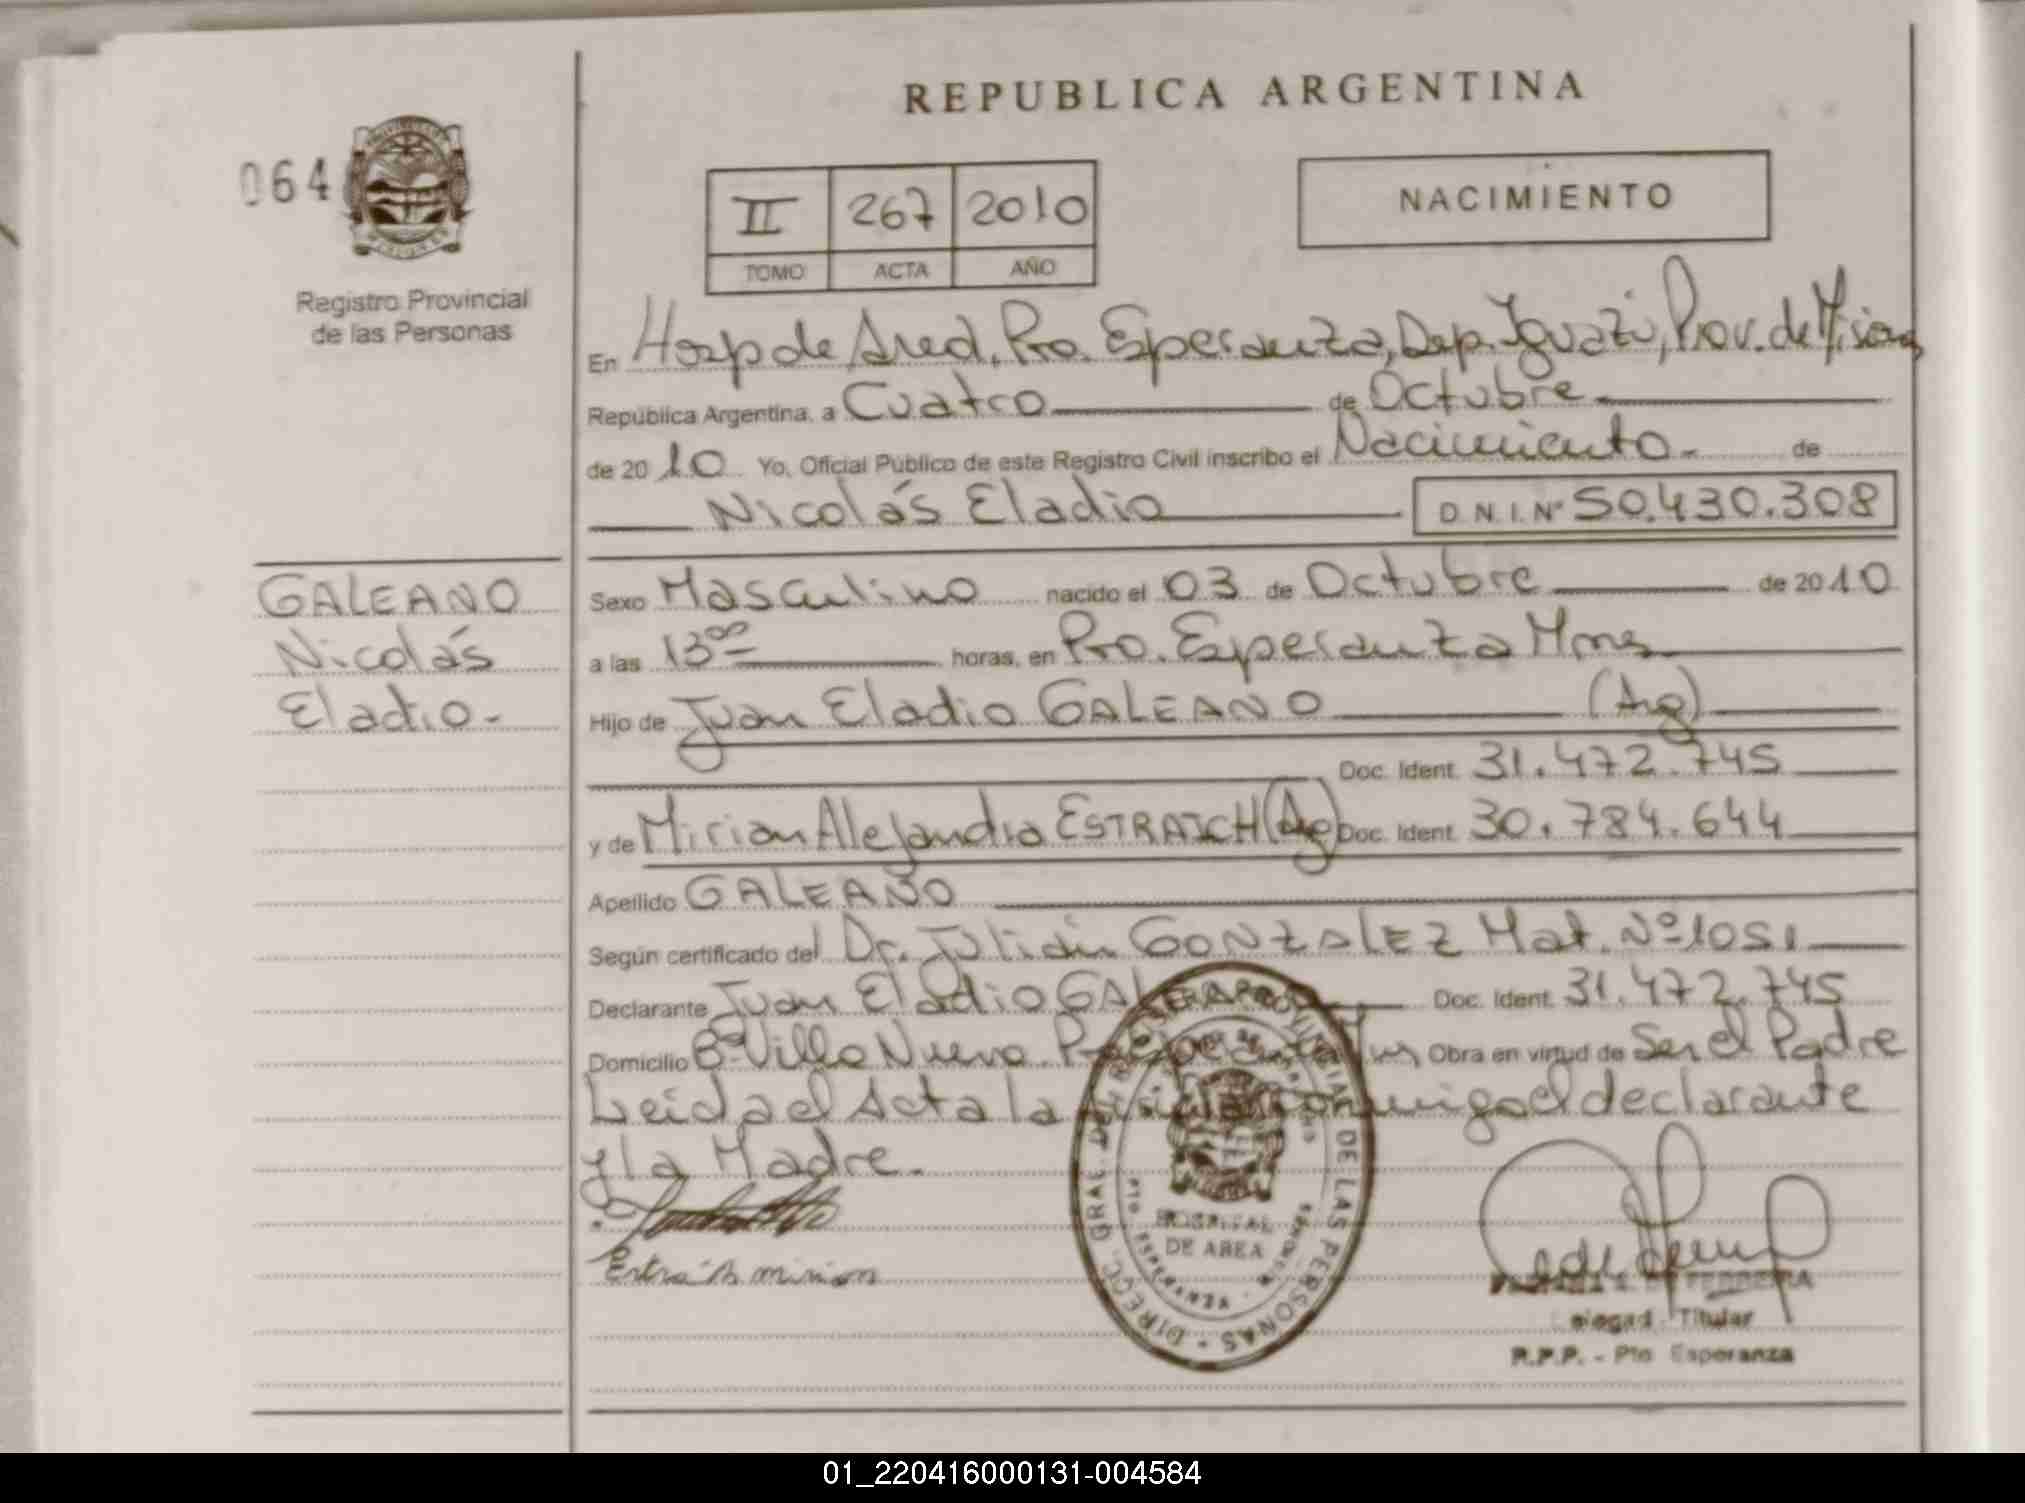 REPUBLICA ARGENTINA
064
II 267 2010
TOMO ACTA AÑO
NACIMIENTO
Registro Provincial
de las Personas
En Hosp de Area, Pto. Esperanza, Dep. Iguazú, Prov. de Misiones
República Argentina, a Cuatro de Octubre
de 2010 Yo, Oficial Público de este Registro Civil inscribo el Nacimiento. de
Nicolás Eladio D.N.I. Nº 50.430.308
GALEANO
Nicolás
Eladio.-
Sexo Masculino nacido el 03 de Octubre de 2010
a las 13 00 horas, en Pto. Esperanza Mnes
Hijo de Juan Eladio GALEANO (Arg)
Doc. Ident. 31.472.745
y de Mirian Alejandra ESTRAICH (Arg) Doc. Ident. 30.784.644
Apellido GALEANO
Según certificado del Dr. Julián GONZALEZ Mat. Nº 1051
Declarante Juan Eladio Doc. Ident. 31.472.745
Domicilio Bº Villa Nueva Obra en virtud de Ser el Padre
Leida el Acta la conmigo el declarante
y la Madre.
HOSPITAL
DE AREA
DIRECC. GRAL. DEL REGISTRO PROVINCIAL DE LAS PERSONAS
PTO ESPERANZA
FERREIRA
Titular
R.P.P. - Pto Esperanza
01_220416000131-004584